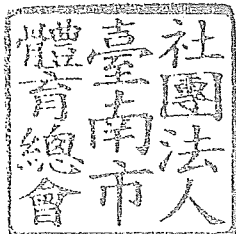 社團法人
臺南市
體育總會